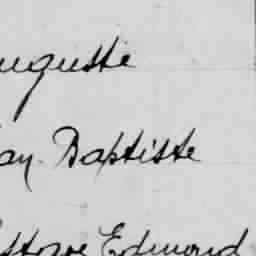 uguste
ay Baptiste
stave Edmond